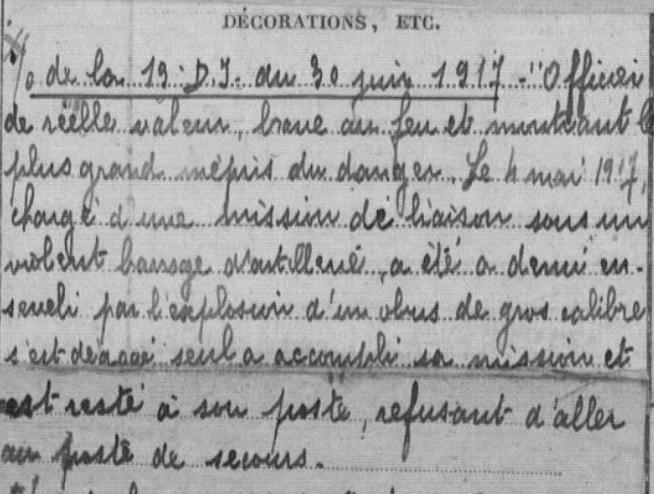 DÉCORATIONS, ETC.
%o de la 19 D.I. du 30 juin 1917 - "Officier
de réelle valeur, brave au feu et montrant le
plus grand mépris du danger. Le 4 mai 1917,
chargé d'une mission de liaison sous un
violent barrage d'artillerie, a été a demi en-
seveli par l'explosion d'un obus de gros calibre
s'est dégagé seul a accompli sa mission et
est resté à son poste, refusant d'aller
au poste de secours.